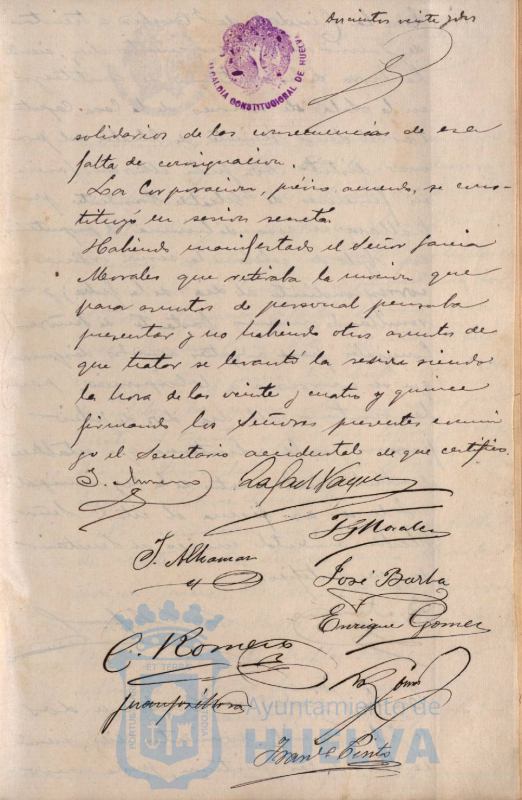 Doscientos veinte y dos
ALCALDIA CONSTITUCIONAL DE HUELVA
solidarios de las consecuencias de esa
falta de consignacion.
La Corporacion, previo acuerdo, se cons-
tituyó en sesion secreta.
Habiendo manifestado el Señor Garcia
Morales que retiraba la mocion que
para asuntos de personal pensaba
presentar y no habiendo otros asuntos de
que tratar se levantó la sesion siendo
la hora de las veinte y cuatro y quince
firmando los Señores presentes conmi-
go el Secretario accidental de que certifico.
J. Moreno Rafael Vazquez
F G Morales
J. Alhamar
José Barba
Enrique Gomez
C. Romero
Juan José Mora
Ayuntamiento de
HUELVA
Pinto